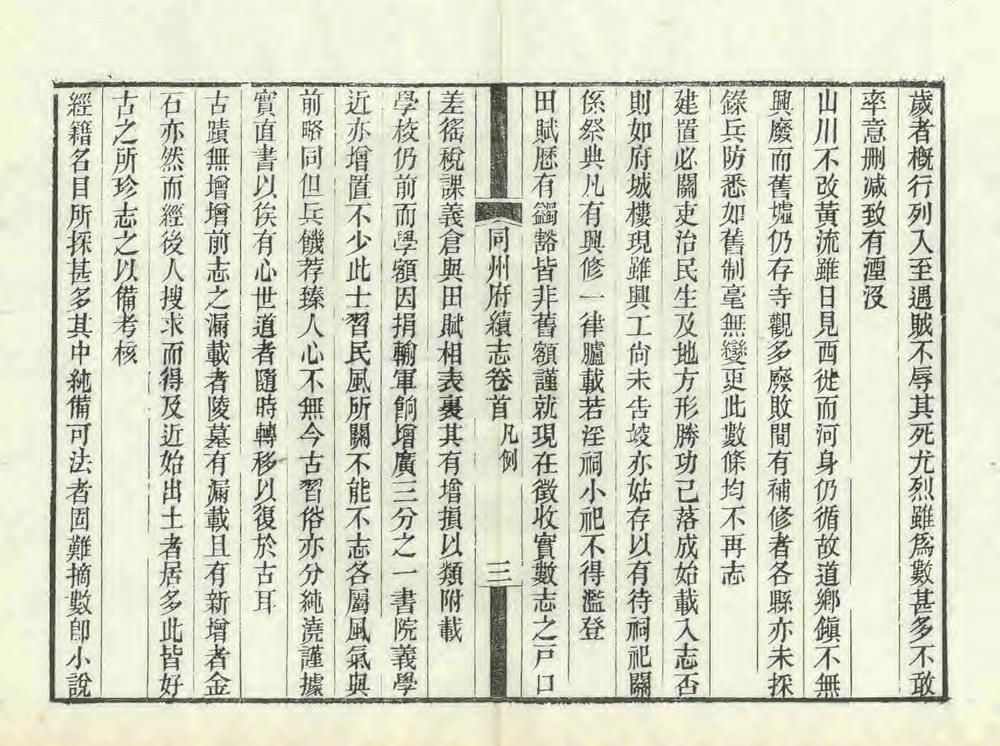 歲者槪行列入至遇賊不辱其死尤烈雖爲數甚多不敢
率意刪減致有湮沒
山川不改黃流雖日見西徙而河身仍循故道鄉鎭不無
興廢而舊墟仍存寺觀多廢敗間有補修者各縣亦未採
錄兵防悉如舊制毫無變更此數條均不再志
建置必關吏治民生及地方形勝功已落成始載入志否
則如府城樓現雖興工尙未告竣亦姑存以有待祠祀關
係祭典凡有興修一律臚載若淫祠小祀不得濫登
田賦歷有蠲豁皆非舊額謹就現在徵收實數志之戸口
同州府續志卷首 凡例 三
差徭稅課義倉與田賦相表裏其有增損以類附載
學校仍前而學額因捐輸軍餉增廣三分之一書院義學
近亦增置不少此士習民風所關不能不志各屬風氣與
前略同但兵饑荐臻人心不無今古習俗亦分純澆謹據
實直書以俟有心世道者隨時轉移以復於古耳
古蹟無增增前志之漏載者陵墓有漏載且有新增者金
石亦然而經後人搜求而得及近始出土者居多此皆好
古之所珍志之以備考核
經籍名目所採甚多其中純備可法者固難摘數卽小說